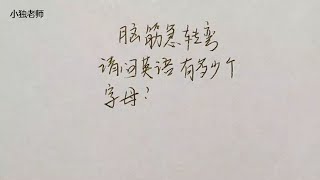 小独老师
脑筋急转弯
请问英语有多少个
字母？